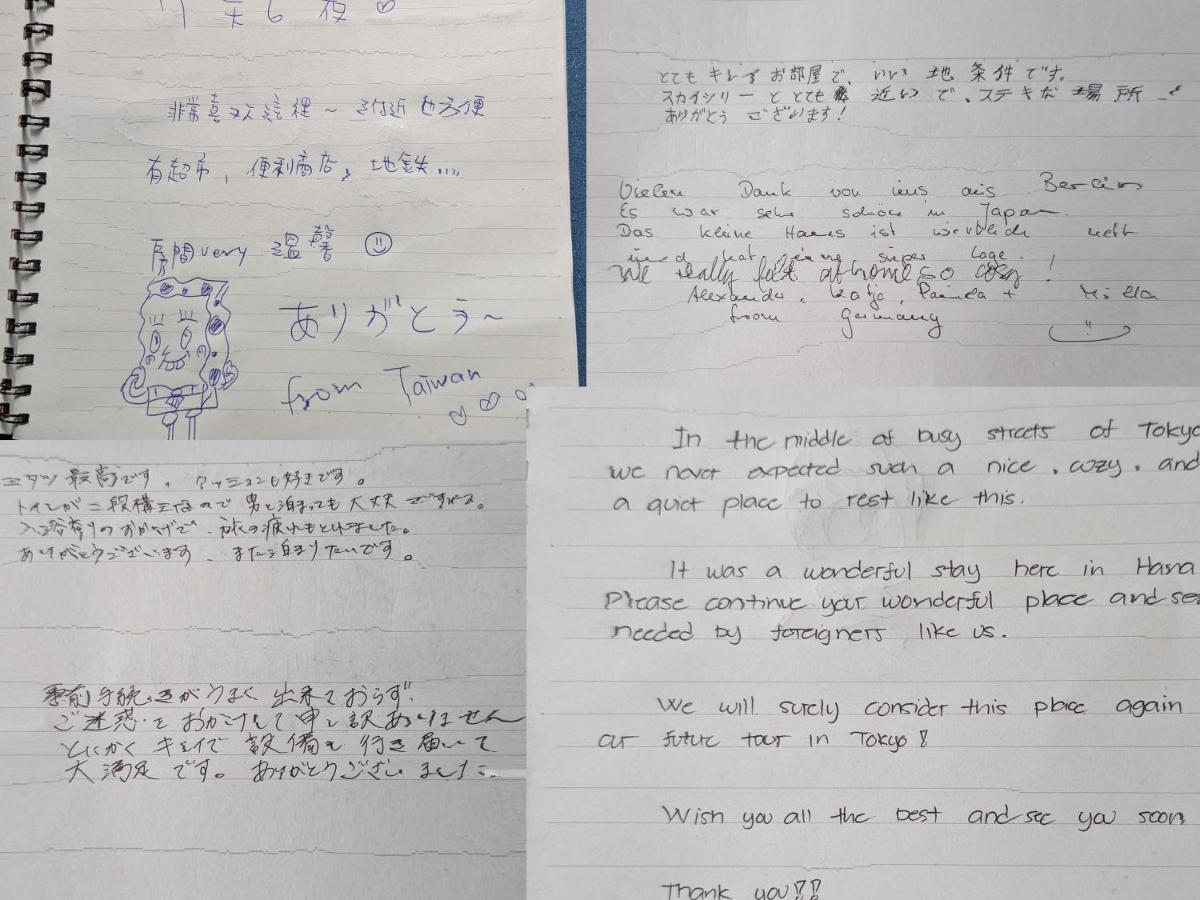 天 6 夜
非常喜欢這裡~ 附近也方便
有超市, 便利商店, 地鉄....
房間very 温馨
ありがとう~
from Taiwan
とてもキレイなお部屋で、いい地条件です。
スカイツリーととても近いで、ステキな場所
ありがとうございます!
Vielen Dank von uns aus Berlin
Es war sehr schön in Japan.
Das kleine Haus ist wirklich nett
und hat eine super Lage.
We really felt at home so cozy!
Alexander, Katja, + Milla
from Germany
最高です。クッションも好きです。
トイレが二段構えなので男と泊まっても大丈夫ですね。
おかげで、旅の疲れもとれました。
ありがとうございます、また泊まりたいです。
事前手続きがうまく出来ておらず、
ご迷惑をおかけして申し訳ありません
とにかくキレイで設備も行き届いて
大満足です。ありがとうございました
In the middle of busy streets of Tokyo
we never expected such a nice, cozy, and
a quiet place to rest like this.
It was a wonderful stay here in Hana
Please continue your wonderful place and
needed by foreigners like us.
We will surely consider this place again
our future tour in Tokyo!
Wish you all the best and see you soon
Thank you!!